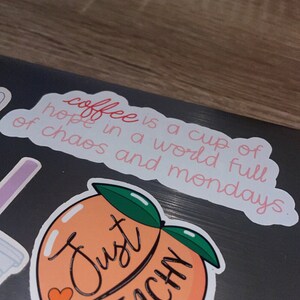 coffee is a cup of
hope in a world full
of chaos and mondays
Just
PEACHY